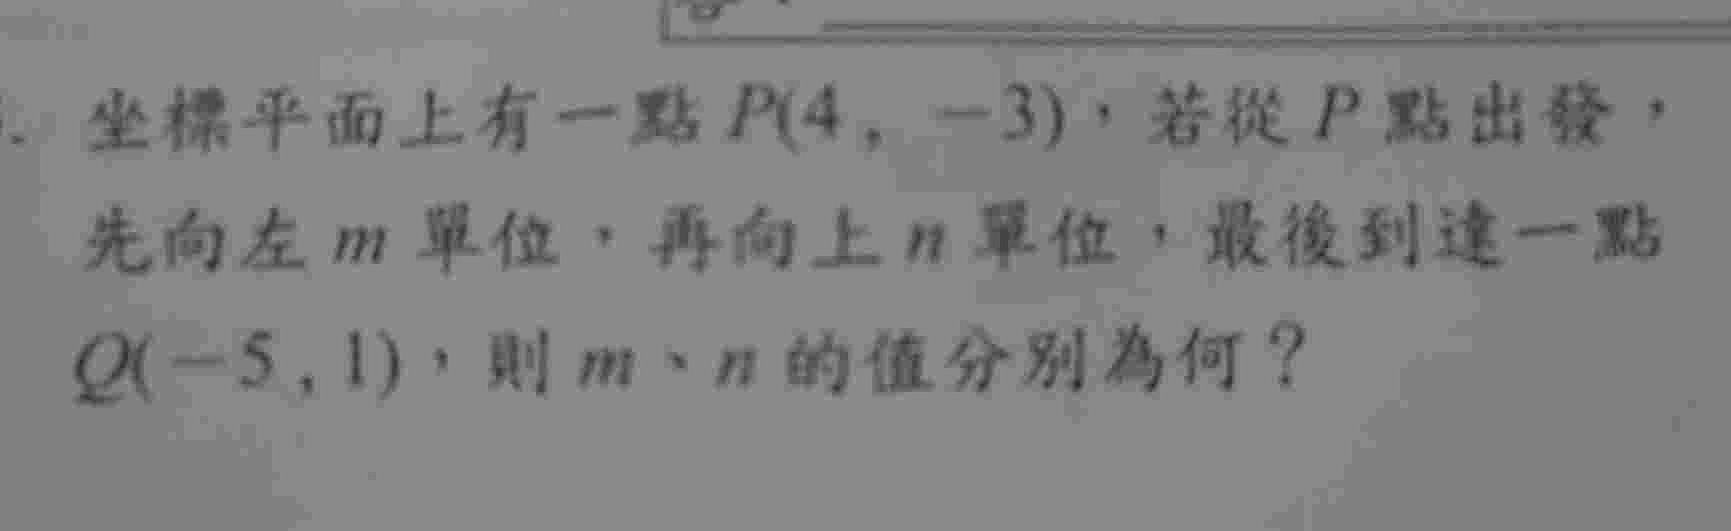 坐標平面上有一點 P(4，-3)，若從 P 點出發，
先向左 m 單位，再向上 n 單位，最後到達一點
Q(-5 , 1)，則 m、n 的值分別為何？